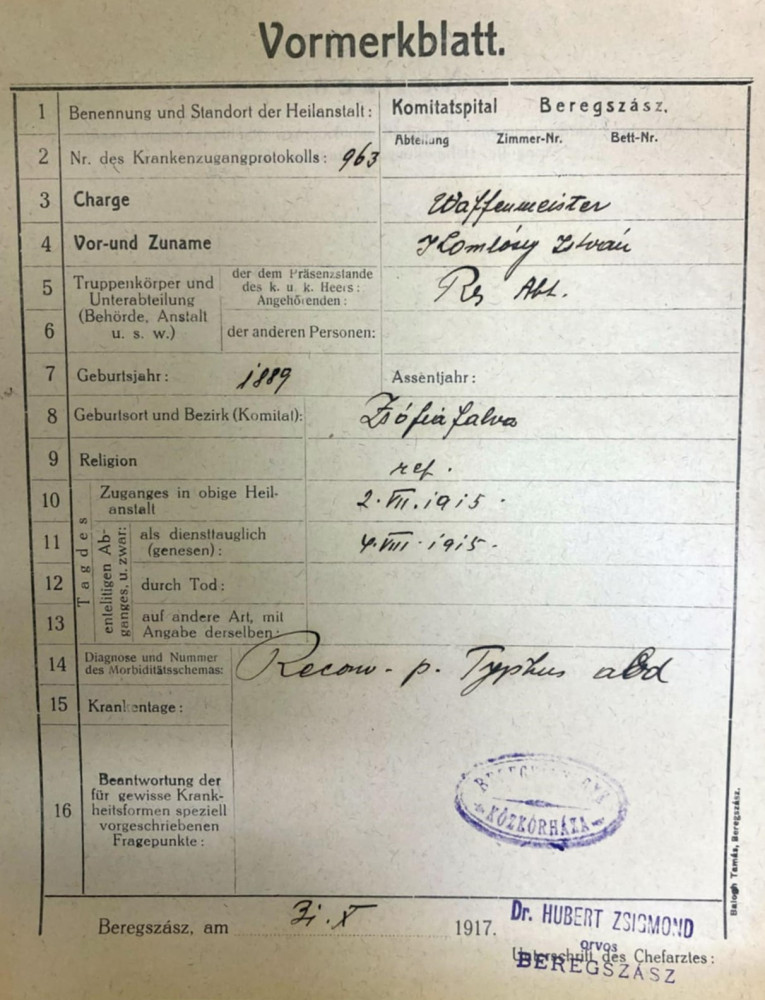 Vormerkblatt.
1 Benennung und Standort der Heilanstalt: Komitatspital Beregszász.
Abteilung Zimmer-Nr. Bett-Nr.
2 Nr. des Krankenzugangprotokolls: 963
3 Charge Waffenmeister
4 Vor-und Zuname Komlósy István
5 Truppenkörper und Unterabteilung (Behörde, Anstalt u. s. w.) der dem Präsenzstande des k. u. k. Heers: Angehörenden: Res Abt.
6 der anderen Personen:
7 Geburtsjahr: 1889 Assentjahr:
8 Geburtsort und Bezirk (Komitat): Zsófiafalva
9 Religion ref.
Tag des
10 Zuganges in obige Heil-
anstalt 2. VII. 1915.
entelitigen Ab-
ganges, u. zwar:
11 als diensttauglich
(genesen): 4. VIII. 1915.
12 durch Tod:
13 auf andere Art, mit
Angabe derselben:
14 Diagnose und Nummer
des Morbiditätsschemas: Reconv. p. Typhus abd
15 Krankentage:
16 Beantwortung der
für gewisse Krank-
heitsformen speziell
vorgeschriebenen
Fragepunkte:
KÖZKÓRHÁZA
Balogh Tamás, Beregszász.
Beregszász, am 31. X 1917.
Dr. HUBERT ZSIGMOND
orvos
Unterschrift des Chefarztes:
BEREGSZÁSZ